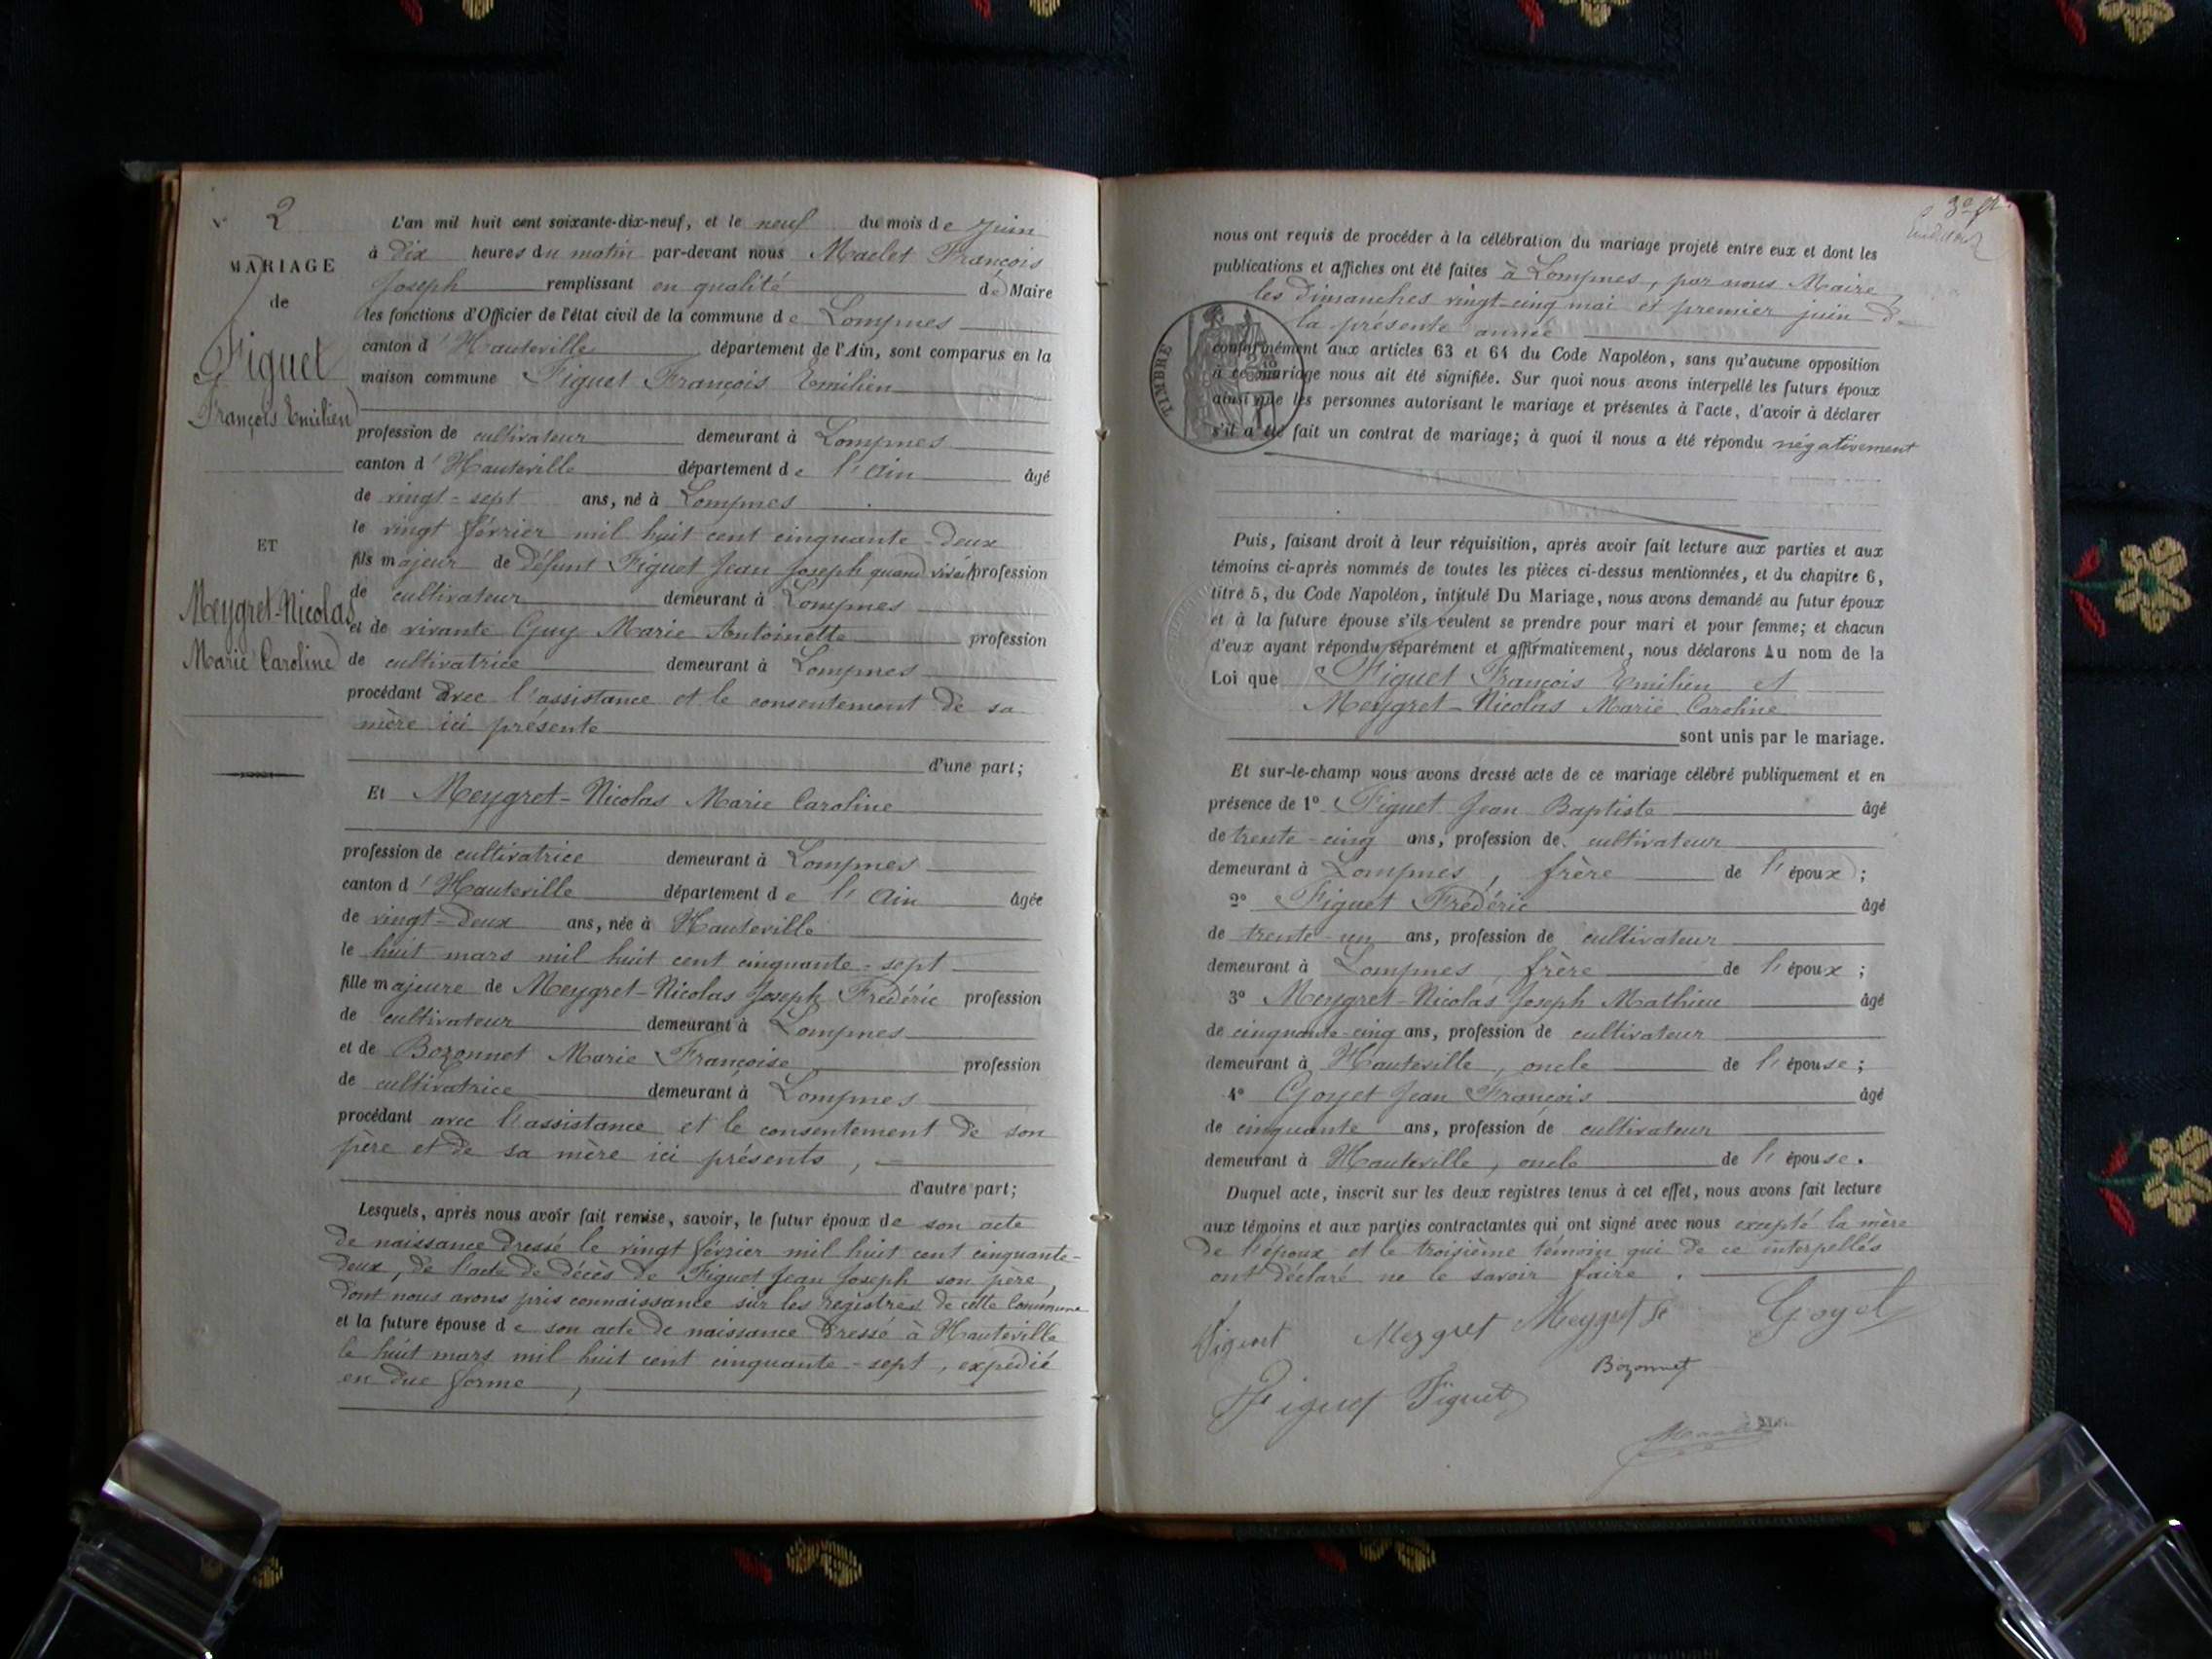 2
MARIAGE
de
Figuet
François Emilien
ET
Meygret-Nicolas
Marie Caroline
L'an mil huit cent soixante-dix-neuf, et le neuf du mois de Juin
à dix heures du matin par-devant nous Maclet François
Joseph remplissant en qualité de Maire
les fonctions d'Officier de l'état civil de la commune de Lompnes
canton d'Hauteville département de l'Ain, sont comparus en la
maison commune Figuet François Emilien
profession de cultivateur demeurant à Lompnes
canton d'Hauteville département de l'Ain âgé
de vingt-sept ans, né à Lompnes
le vingt février mil huit cent cinquante-deux
fils majeur de défunt Figuet Jean Joseph quand vivait profession
de cultivateur demeurant à Lompnes
et de vivante Guy Marie Antoinette profession
de cultivatrice demeurant à Lompnes
procédant avec l'assistance et le consentement de sa
mère ici présente
d'une part;
Et Meygret-Nicolas Marie Caroline
profession de cultivatrice demeurant à Lompnes
canton d'Hauteville département de l'Ain âgée
de vingt-deux ans, née à Hauteville
le huit mars mil huit cent cinquante-sept
fille majeure de Meygret-Nicolas Joseph Frédéric profession
de cultivateur demeurant à Lompnes
et de Bozonnet Marie Françoise profession
de cultivatrice demeurant à Lompnes
procédant avec l'assistance et le consentement de son
père et de sa mère ici présents,
d'autre part;
Lesquels, après nous avoir fait remise, savoir, le futur époux de son acte
de naissance dressé le vingt février mil huit cent cinquante-
deux, de l'acte de décès de Figuet Jean Joseph son père,
dont nous avons pris connaissance sur les registres de cette Commune
et la future épouse de son acte de naissance dressé à Hauteville
le huit mars mil huit cent cinquante-sept, expédié
en due forme,
nous ont requis de procéder à la célébration du mariage projeté entre eux et dont les
publications et affiches ont été faites à Lompnes, par nous Maire,
les dimanches vingt-cinq mai et premier juin de
la présente année
TIMBRE
conformément aux articles 63 et 64 du Code Napoléon, sans qu'aucune opposition
à ce mariage nous ait été signifiée. Sur quoi nous avons interpellé les futurs époux
ainsi que les personnes autorisant le mariage et présentes à l'acte, d'avoir à déclarer
s'il a été fait un contrat de mariage; à quoi il nous a été répondu négativement
Puis, faisant droit à leur réquisition, après avoir fait lecture aux parties et aux
témoins ci-après nommés de toutes les pièces ci-dessus mentionnées, et du chapitre 6,
titre 5, du Code Napoléon, intitulé Du Mariage, nous avons demandé au futur époux
et à la future épouse s'ils veulent se prendre pour mari et pour femme; et chacun
d'eux ayant répondu séparément et affirmativement, nous déclarons Au nom de la
Loi que Figuet François Emilien et
Meygret-Nicolas Marie Caroline
sont unis par le mariage.
Et sur-le-champ nous avons dressé acte de ce mariage célébré publiquement et en
présence de 1° Figuet Jean Baptiste âgé
de trente-cinq ans, profession de cultivateur
demeurant à Lompnes, frère de l'époux;
2° Figuet Frédéric âgé
de trente-un ans, profession de cultivateur
demeurant à Lompnes, frère de l'époux;
3° Meygret-Nicolas Joseph Mathieu âgé
de cinquante-cinq ans, profession de cultivateur
demeurant à Hauteville, oncle de l'épouse;
4° Goyet Jean François âgé
de cinquante ans, profession de cultivateur
demeurant à Hauteville, oncle de l'épouse.
Duquel acte, inscrit sur les deux registres tenus à cet effet, nous avons fait lecture
aux témoins et aux parties contractantes qui ont signé avec nous excepté la mère
de l'époux et le troisième témoin qui de ce interpellés
ont déclaré ne le savoir faire.
Figuet Meygret Meygret Goyet
Bozonnet
Figuet Figuet